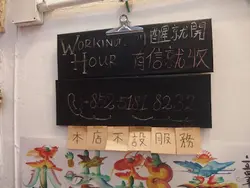 WORKING HOUR
醒就開
有信就收
+852 5181 8232
本店不設服務